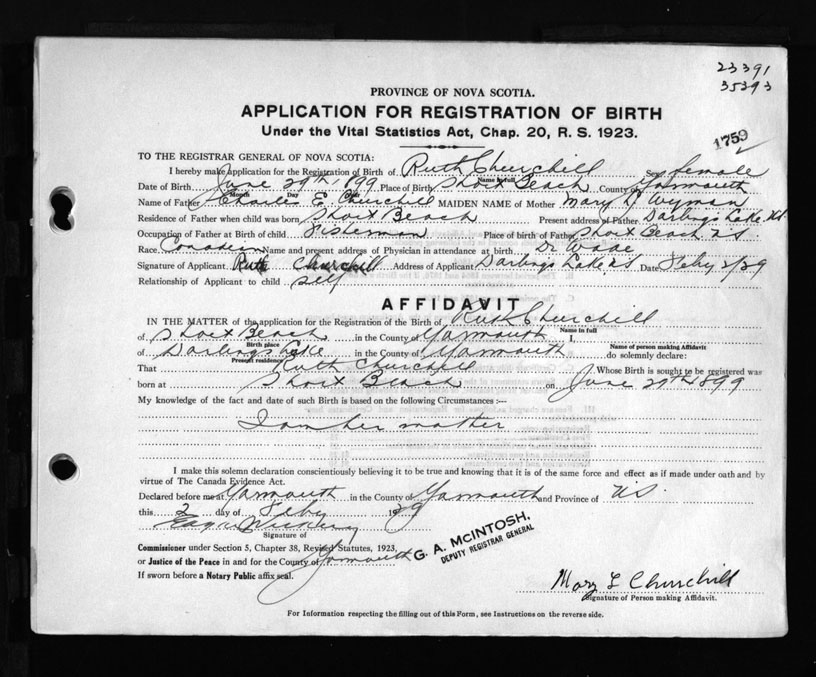 23391
35393
PROVINCE OF NOVA SCOTIA.
APPLICATION FOR REGISTRATION OF BIRTH
Under the Vital Statistics Act, Chap. 20, R. S. 1923.
1759
TO THE REGISTRAR GENERAL OF NOVA SCOTIA:
I hereby make application for the Registration of Birth of Ruth Churchill Sex female
Name in full
Date of Birth June 29th 1899 Place of Birth Short Beach County of Yarmouth
Month Day
Name of Father Charles E Churchill MAIDEN NAME of Mother Mary D. Wyman
Residence of Father when child was born Short Beach Present address of Father Darlings Lake N.S.
Occupation of Father at Birth of child Fisherman Place of birth of Father Short Beach N S
Race Canadian Name and present address of Physician in attendance at birth Dr Wade
Signature of Applicant Ruth Churchill Address of Applicant Darlings Lake N S Date Feby 2/29
Relationship of Applicant to child self
AFFIDAVIT
IN THE MATTER of the application for the Registration of the Birth of Ruth Churchill
Name in full
of Short Beach in the County of Yarmouth I,
Birth place Name of person making Affidavit
of Darlings Lake in the County of Yarmouth do solemnly declare:
Present residence
That Ruth Churchill Whose Birth is sought to be registered was
born at Short Beach on June 29th 1899
My knowledge of the fact and date of such Birth is based on the following Circumstances :—
I am her mother
I make this solemn declaration conscientiously believing it to be true and knowing that it is of the same force and effect as if made under oath and by
virtue of The Canada Evidence Act.
Declared before me at Yarmouth in the County of Yarmouth and Province of N.S.
this 2 day of Feby 1929
Signature of
Commissioner under Section 5, Chapter 38, Revised Statutes, 1923,
or Justice of the Peace in and for the County of Yarmouth
If sworn before a Notary Public affix seal.
G. A. McINTOSH,
DEPUTY REGISTRAR GENERAL
Mary L Churchill
Signature of Person making Affidavit.
For Information respecting the filling out of this Form, see Instructions on the reverse side.